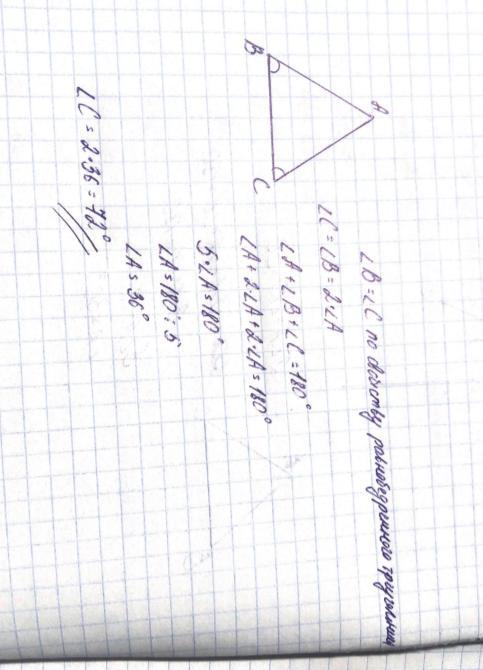 A
B
C
∠B = ∠C по свойству равнобедренного треугольн
∠C = ∠B = 2·∠A
∠A + ∠B + ∠C = 180°
∠A + 2·∠A + 2·∠A = 180°
5·∠A = 180°
∠A = 180° : 5
∠A = 36°
∠C = 2·36 = 72°